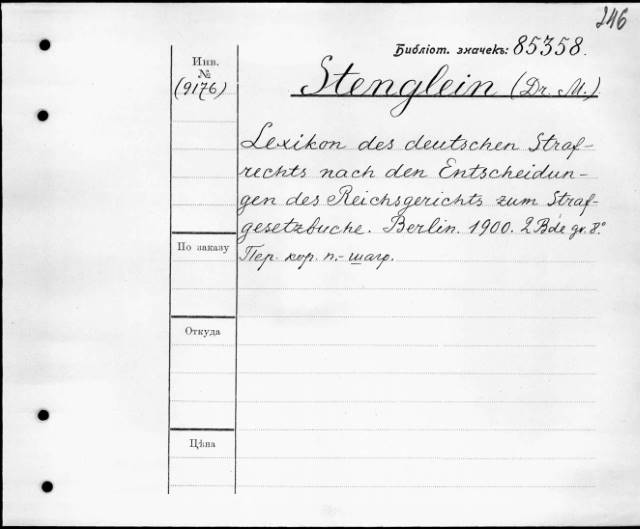 246
Библіот. значекъ: 85358.
Инв.
№
(9176)
Stenglein (Dr. M.)
Lexikon des deutschen Straf-
rechts nach den Entscheidun-
gen des Reichsgerichts zum Straf-
gesetzbuche. Berlin. 1900. 2 Bde gr. 8.°
По заказу
Пер. кор. п.-шагр.
Откуда
Цѣна